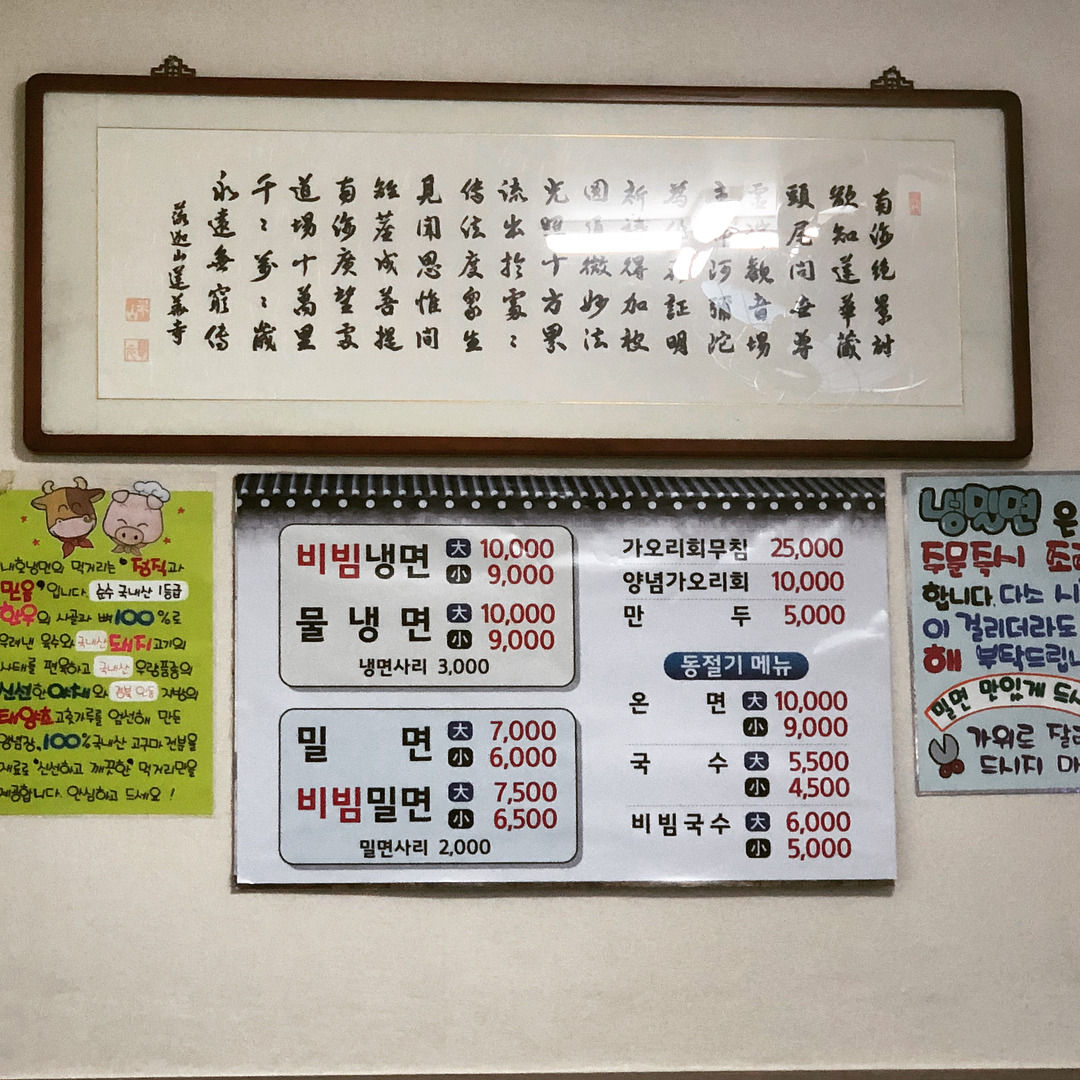 南海絶景封
欲知蓮華藏
頭尾問世尊
音場
阿彌陀
証明
得加被
微妙法
光照十方界
流出於處〻
傳法度眾生
見聞思惟間
成菩提
南海廣
道場十萬里
千〻萬〻歲
永遠無窮傳
落迦山蓮華寺
내호냉면의 먹거리는 "정직과
믿음"입니다. 순수 국내산 1등급
한우의 사골과 뼈 100%로
우려낸 육수와 국내산 돼지고기의
사태를 편육하고 국내산 우량품종의
신선한 야채와 경북 지방의
태양초 고춧가루를 엄선해 만든
양념장, 100% 국내산 고구마 전분을
재료로 "신선하고 깨끗한" 먹거리만을
제공합니다. 안심하고 드세요!
비빔냉면 大 10,000
小 9,000
물냉면 大 10,000
小 9,000
냉면사리 3,000
밀면 大 7,000
小 6,000
비빔밀면 大 7,500
小 6,500
밀면사리 2,000
가오리회무침 25,000
양념가오리회 10,000
만두 5,000
동절기 메뉴
온면 大 10,000
小 9,000
국수 大 5,500
小 4,500
비빔국수 大 6,000
小 5,000
냉밀면은
주문즉시
합니다. 다소
이 걸리더라도
해 부탁드립니
밀면 맛있게
가위로
드시지